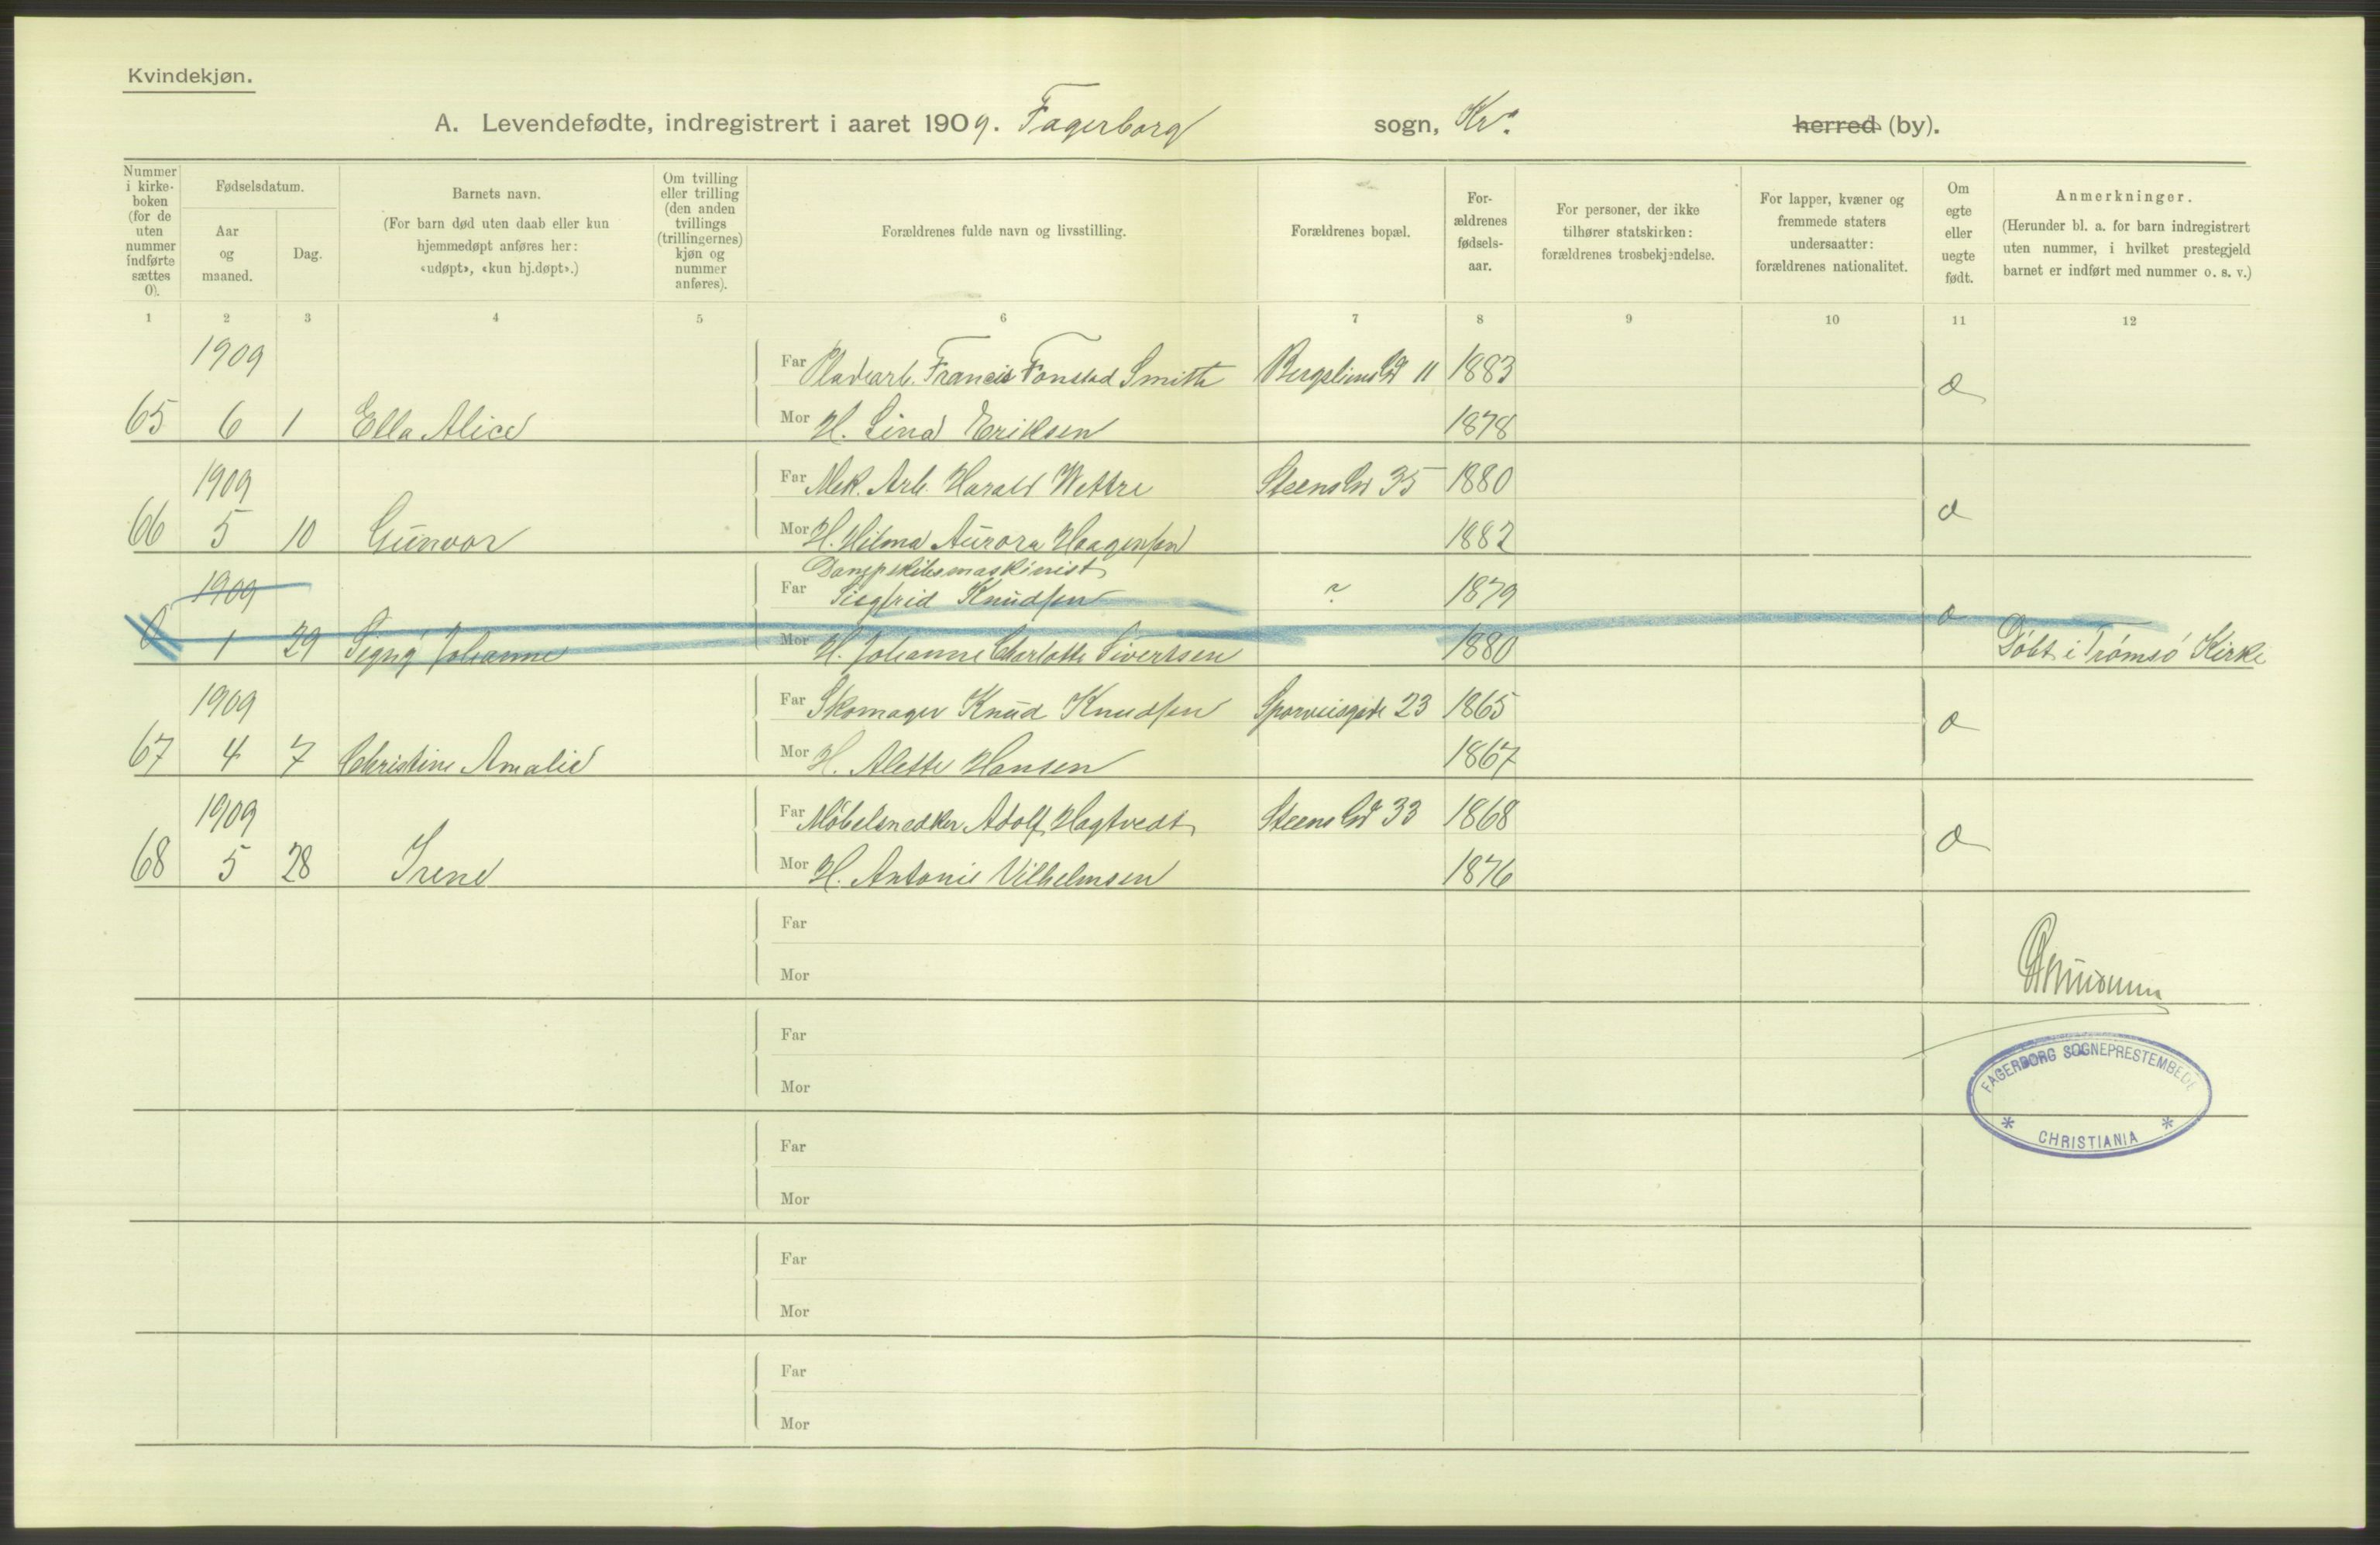 Kvindekjøn.
A. Levendefødte, indregistrert i aaret 1909. Fagerborg sogn, Kra. herred (by).
Nummer i kirke-boken (for de uten nummer indførte sættes 0).
Fødselsdatum.
Aar og maaned.
Dag.
Barnets navn.
(For barn død uten daab eller kun hjemmedøpt anføres her: «udøpt», «kun hj.døpt».)
Om tvilling eller trilling (den anden tvillings (trillingernes) kjøn og nummer anføres).
Forældrenes fulde navn og livsstilling.
Forældrenes bopæl.
For-ældrenes fødsels-aar.
For personer, der ikke tilhører statskirken: forældrenes trosbekjendelse.
For lapper, kvæner og fremmede staters undersaatter: forældrenes nationalitet.
Om egte eller uegte født.
Anmerkninger.
(Herunder bl. a. for barn indregistrert uten nummer, i hvilket prestegjeld barnet er indført med nummer o. s. v.)
1 2 3 4 5 6 7 8 9 10 11 12
1909 Far Pladearb. Francis Fonstad Smith 11 1883
65 6 1 Ella Alice Mor H. Lina Eriksen 1878
1909 Far Mek. Arb. Harald Wettre 35 1880
66 5 10 Gunvor Mor H. Hilma Aurora Haagensen 1882
Dampskibsmaskinist
1909 Far Siegfrid Knudsen ? 1879
0 1 29 Signy Johanne Mor H. Johanne Charlotte Sivertsen 1880 Døbt i Tromsø Kirke
1909 Far Skomager Knud Knudsen Sporveisgade 23 1865
67 4 7 Christine Amalie Mor H. Alette Hansen 1867
1909 Far Møbelsnedker Adolf Hagtvedt 33 1868
68 5 28 Irene Mor H. Antonie Vilhelmsen 1876
Far
Mor
Far
Mor
FAGERBORG SOGNEPRESTEMBEDE
* CHRISTIANIA *
Far
Mor
Far
Mor
Far
Mor